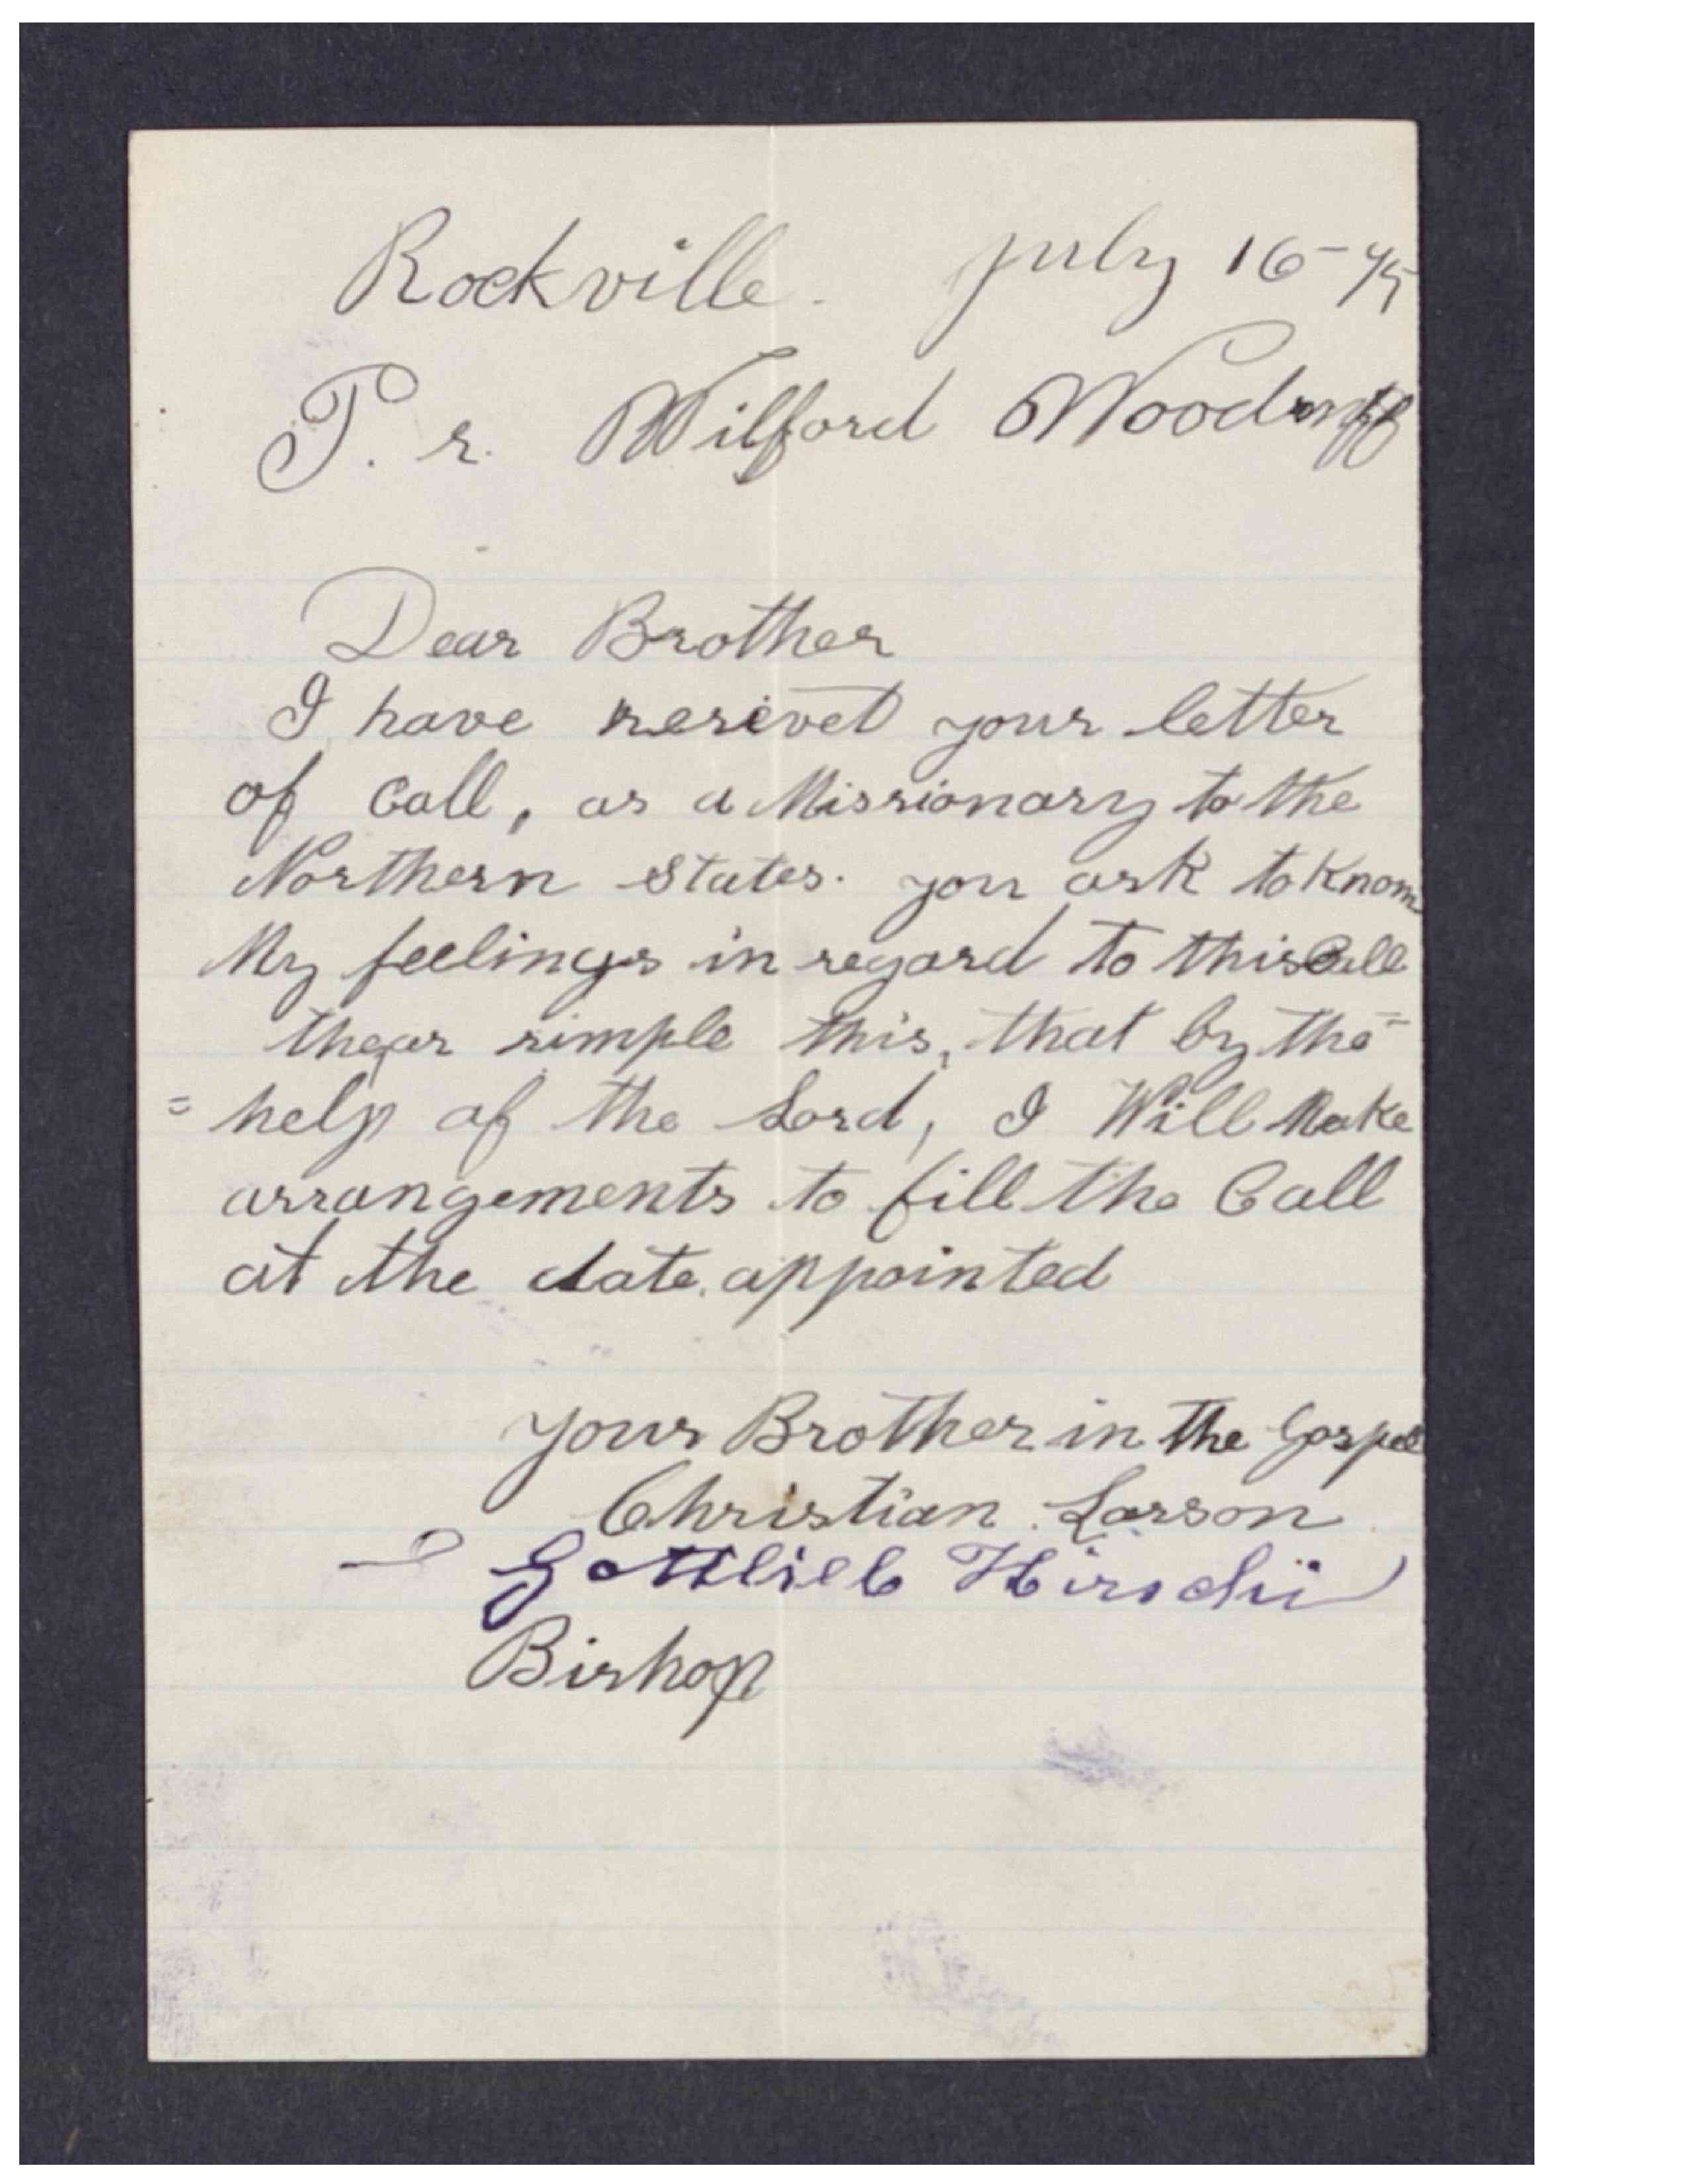 Rockville. july 16-95
P. r. Wilford Woodruff
Dear Brother
I have resivet your letter
of Call, as a Missionary to the
Northern States. you ask to Know
My feelings in regard to this Call
thear simple this, that by the=
= help of the Lord, I Will Make
arrangements to fill the Call
at the date appointed
your Brother in the Gospel
Christian Larson
Gottlieb Hirschi
Bishop